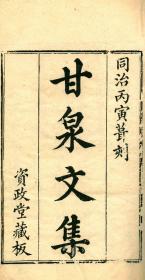 同治丙寅葺刻
甘泉文集
資政堂藏板